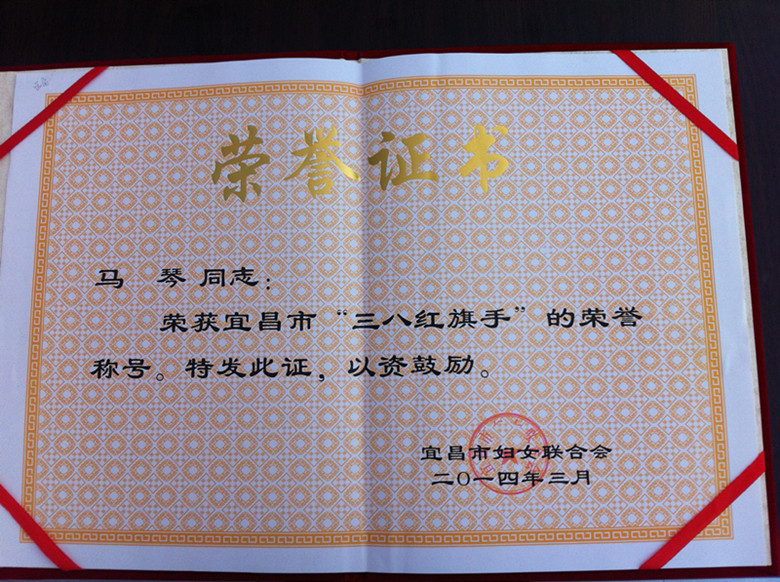 荣誉证书
马 琴 同志：
荣获宜昌市“三八红旗手”的荣誉
称号。特发此证，以资鼓励。
宜昌市妇女联合会
二〇一四年三月